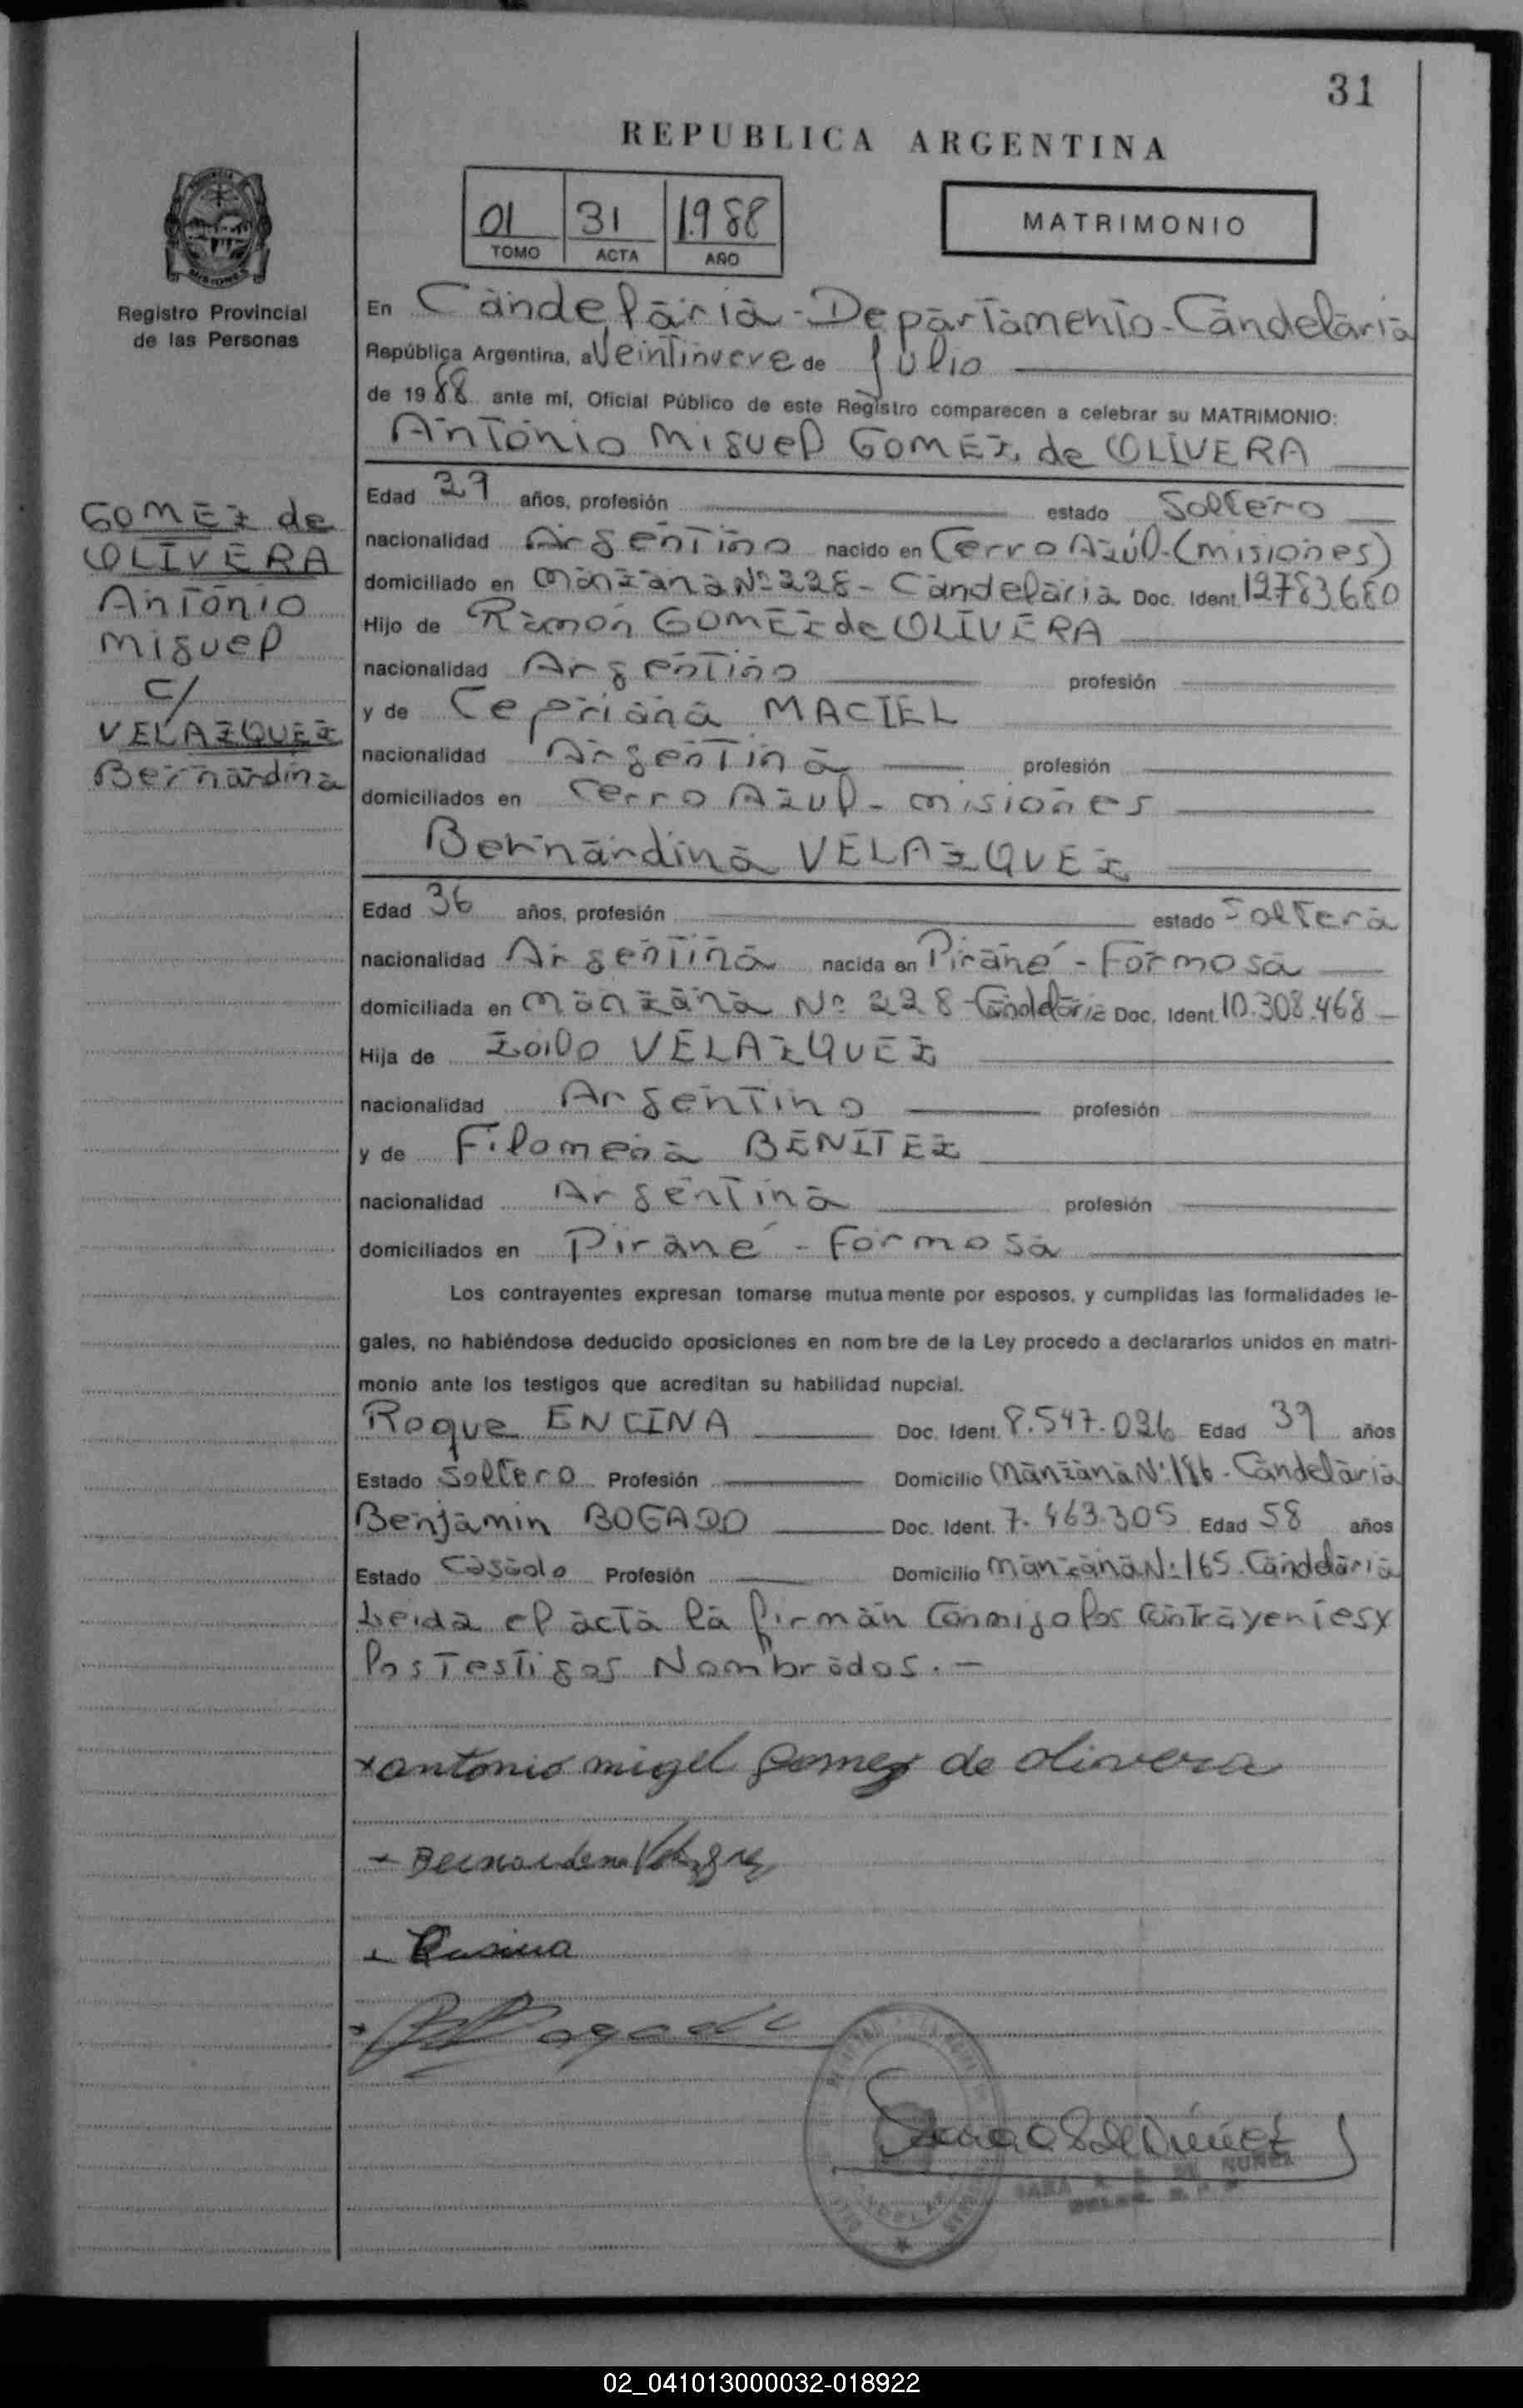 31
REPUBLICA ARGENTINA
01 31 1.988
TOMO ACTA AÑO
MATRIMONIO
Registro Provincial
de las Personas
En Candelaria - Departamento - Candelaria
República Argentina, a Veintinueve de Julio
de 1988 ante mí, Oficial Público de este Registro comparecen a celebrar su MATRIMONIO:
Antonio Miguel GOMEZ de OLIVERA
GOMEZ de
OLIVERA
Antonio
Miguel
c/
VELAZQUEZ
Bernardina
Edad 29 años, profesión estado Soltero
nacionalidad Argentino nacido en Cerro Azúl-(misiones)
domiciliado en Manzana Nº 228 - Candelaria Doc. Ident. 12783680
Hijo de Ramón GOMEZ de OLIVERA
nacionalidad Argentino profesión
y de Cepriana MACIEL
nacionalidad Argentina profesión
domiciliados en Cerro Azul - misiones
Bernardina VELAZQUEZ
Edad 36 años, profesión estado Soltera
nacionalidad Argentina nacida en Pirané - Formosa
domiciliada en Manzana Nº 228 - Candelaria Doc. Ident. 10.308.468 -
Hija de Zoilo VELAZQUEZ
nacionalidad Argentino profesión
y de Filomena BENITEZ
nacionalidad Argentina profesión
domiciliados en Pirané - Formosa
Los contrayentes expresan tomarse mutua mente por esposos, y cumplidas las formalidades le-
gales, no habiéndose deducido oposiciones en nom bre de la Ley procedo a declararlos unidos en matri-
monio ante los testigos que acreditan su habilidad nupcial.
Roque ENCINA Doc. Ident. 8.547.026 Edad 39 años
Estado Soltero Profesión Domicilio Manzana Nº 186 - Candelaria
Benjamin BOGADO Doc. Ident. 7.463.305 Edad 58 años
Estado Casado Profesión Domicilio Manzana Nº 165 - Candelaria
Leida el acta la firman conmigo los contrayentes y
los Testigos Nombrados. -
x antonio migel gomez de olivera
02_041013000032-018922